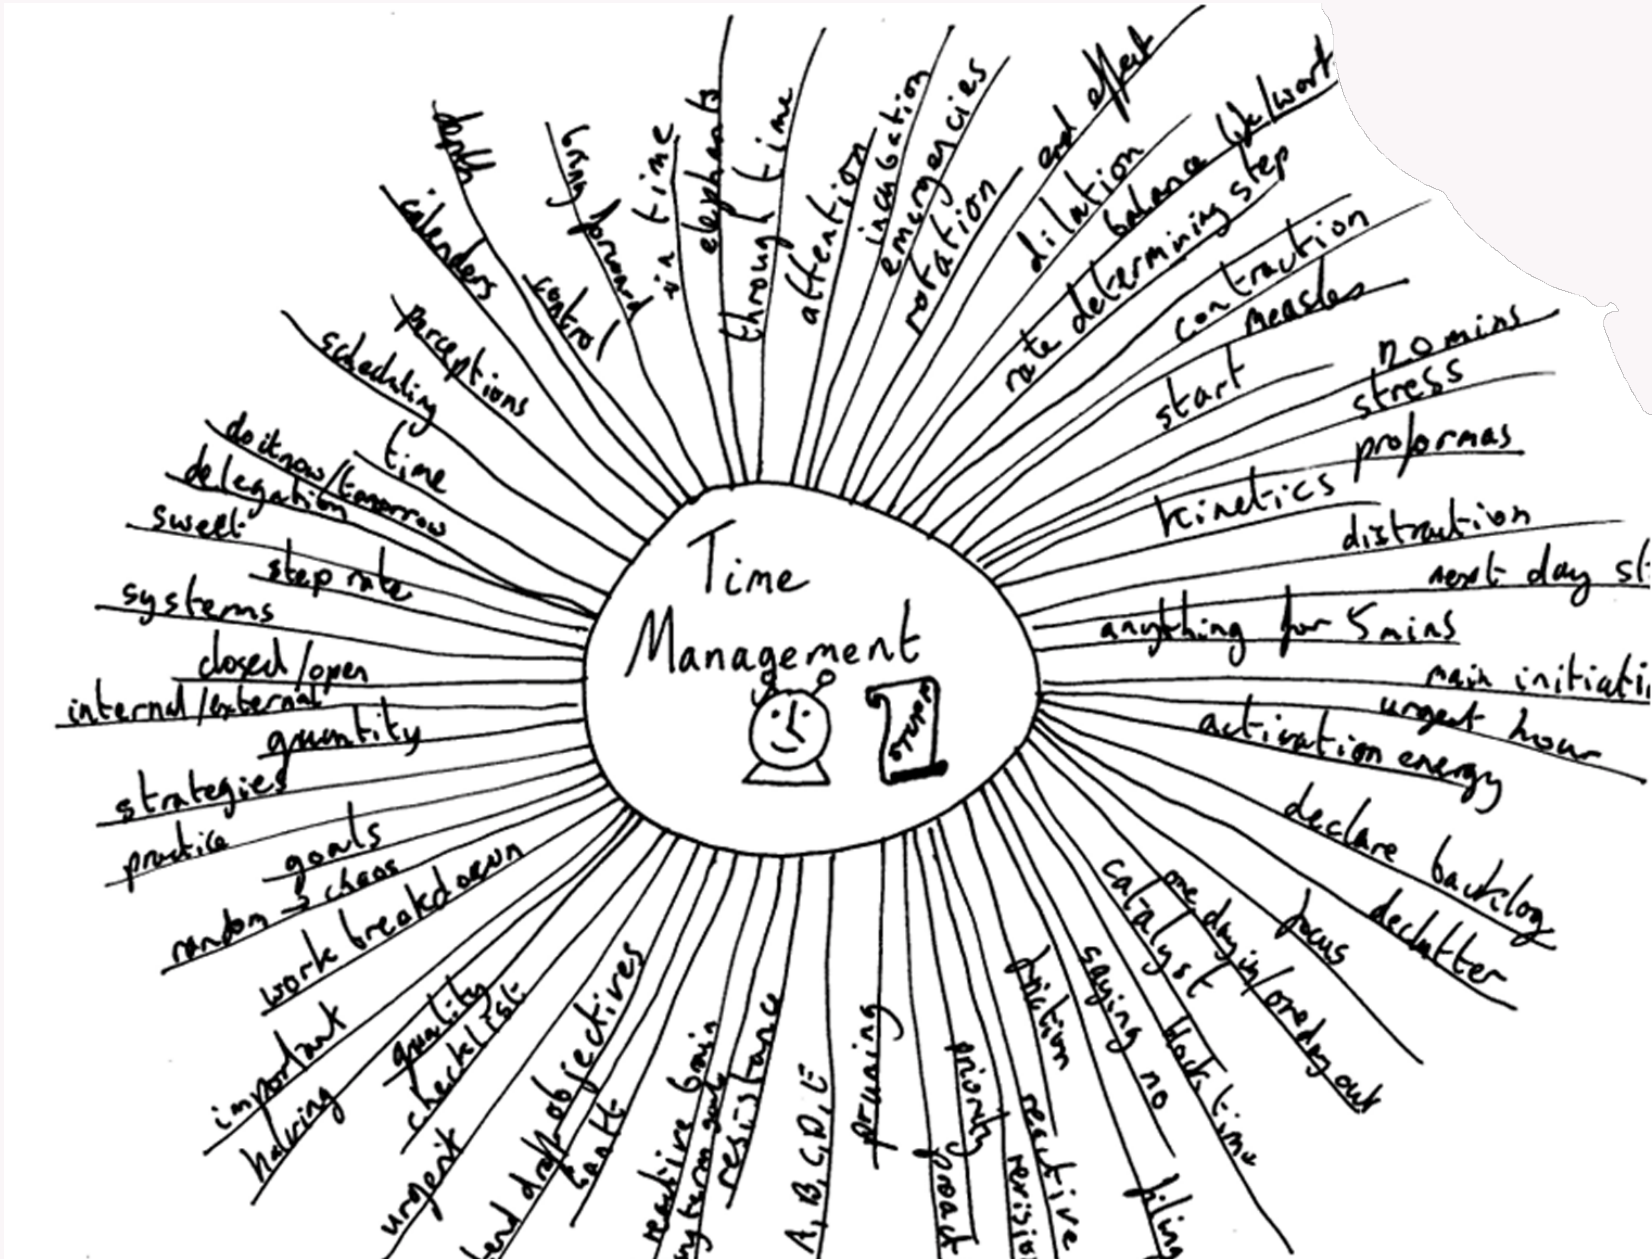 Time
Management
depth
calenders
bring forward
in time
elephants
through time
attention
incubation
emergencies
rotation
end effect
dilation
balance life/work
rate determining step
contraction
measles
start
no mins
stress
proformas
kinetics
distraction
next day st
anything for 5 mins
main initiati
urgent hour
activation energy
declare backlog
declutter
focus
one day in/one day out
catalyst
block time
saying no
filing
friction
reactive
priority
proact
pruning
A, B, C, D, E
resistance
reactive brain
objectives
urgent
checklist
quality
halving
important
work breakdown
random → chaos
goals
practice
strategies
quantity
internal/external
closed/open
systems
step rate
sweet
delegation
do it now/tomorrow
time
scheduling
perceptions
control